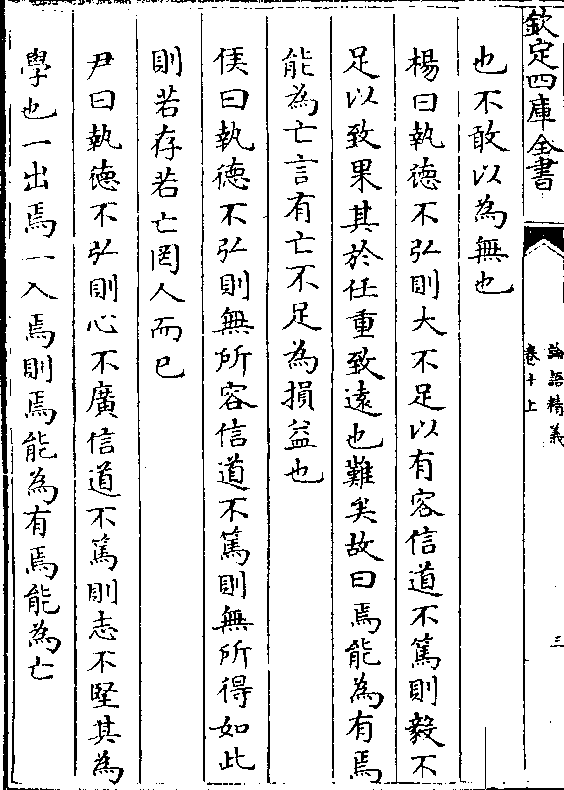 欽定四庫全書
論語精義
卷十上
三
也不敢以為無也
楊曰執德不弘則大不足以有容信道不篤則毅不
足以致果其於任重致遠也難矣故曰焉能為有焉
能為亡言有亡不足為損益也
侯曰執德不弘則無所容信道不篤則無所得如此
則若存若亡罔人而已
尹曰執德不弘則心不廣信道不篤則志不堅其為
學也一出焉一入焉則焉能為有焉能為亡